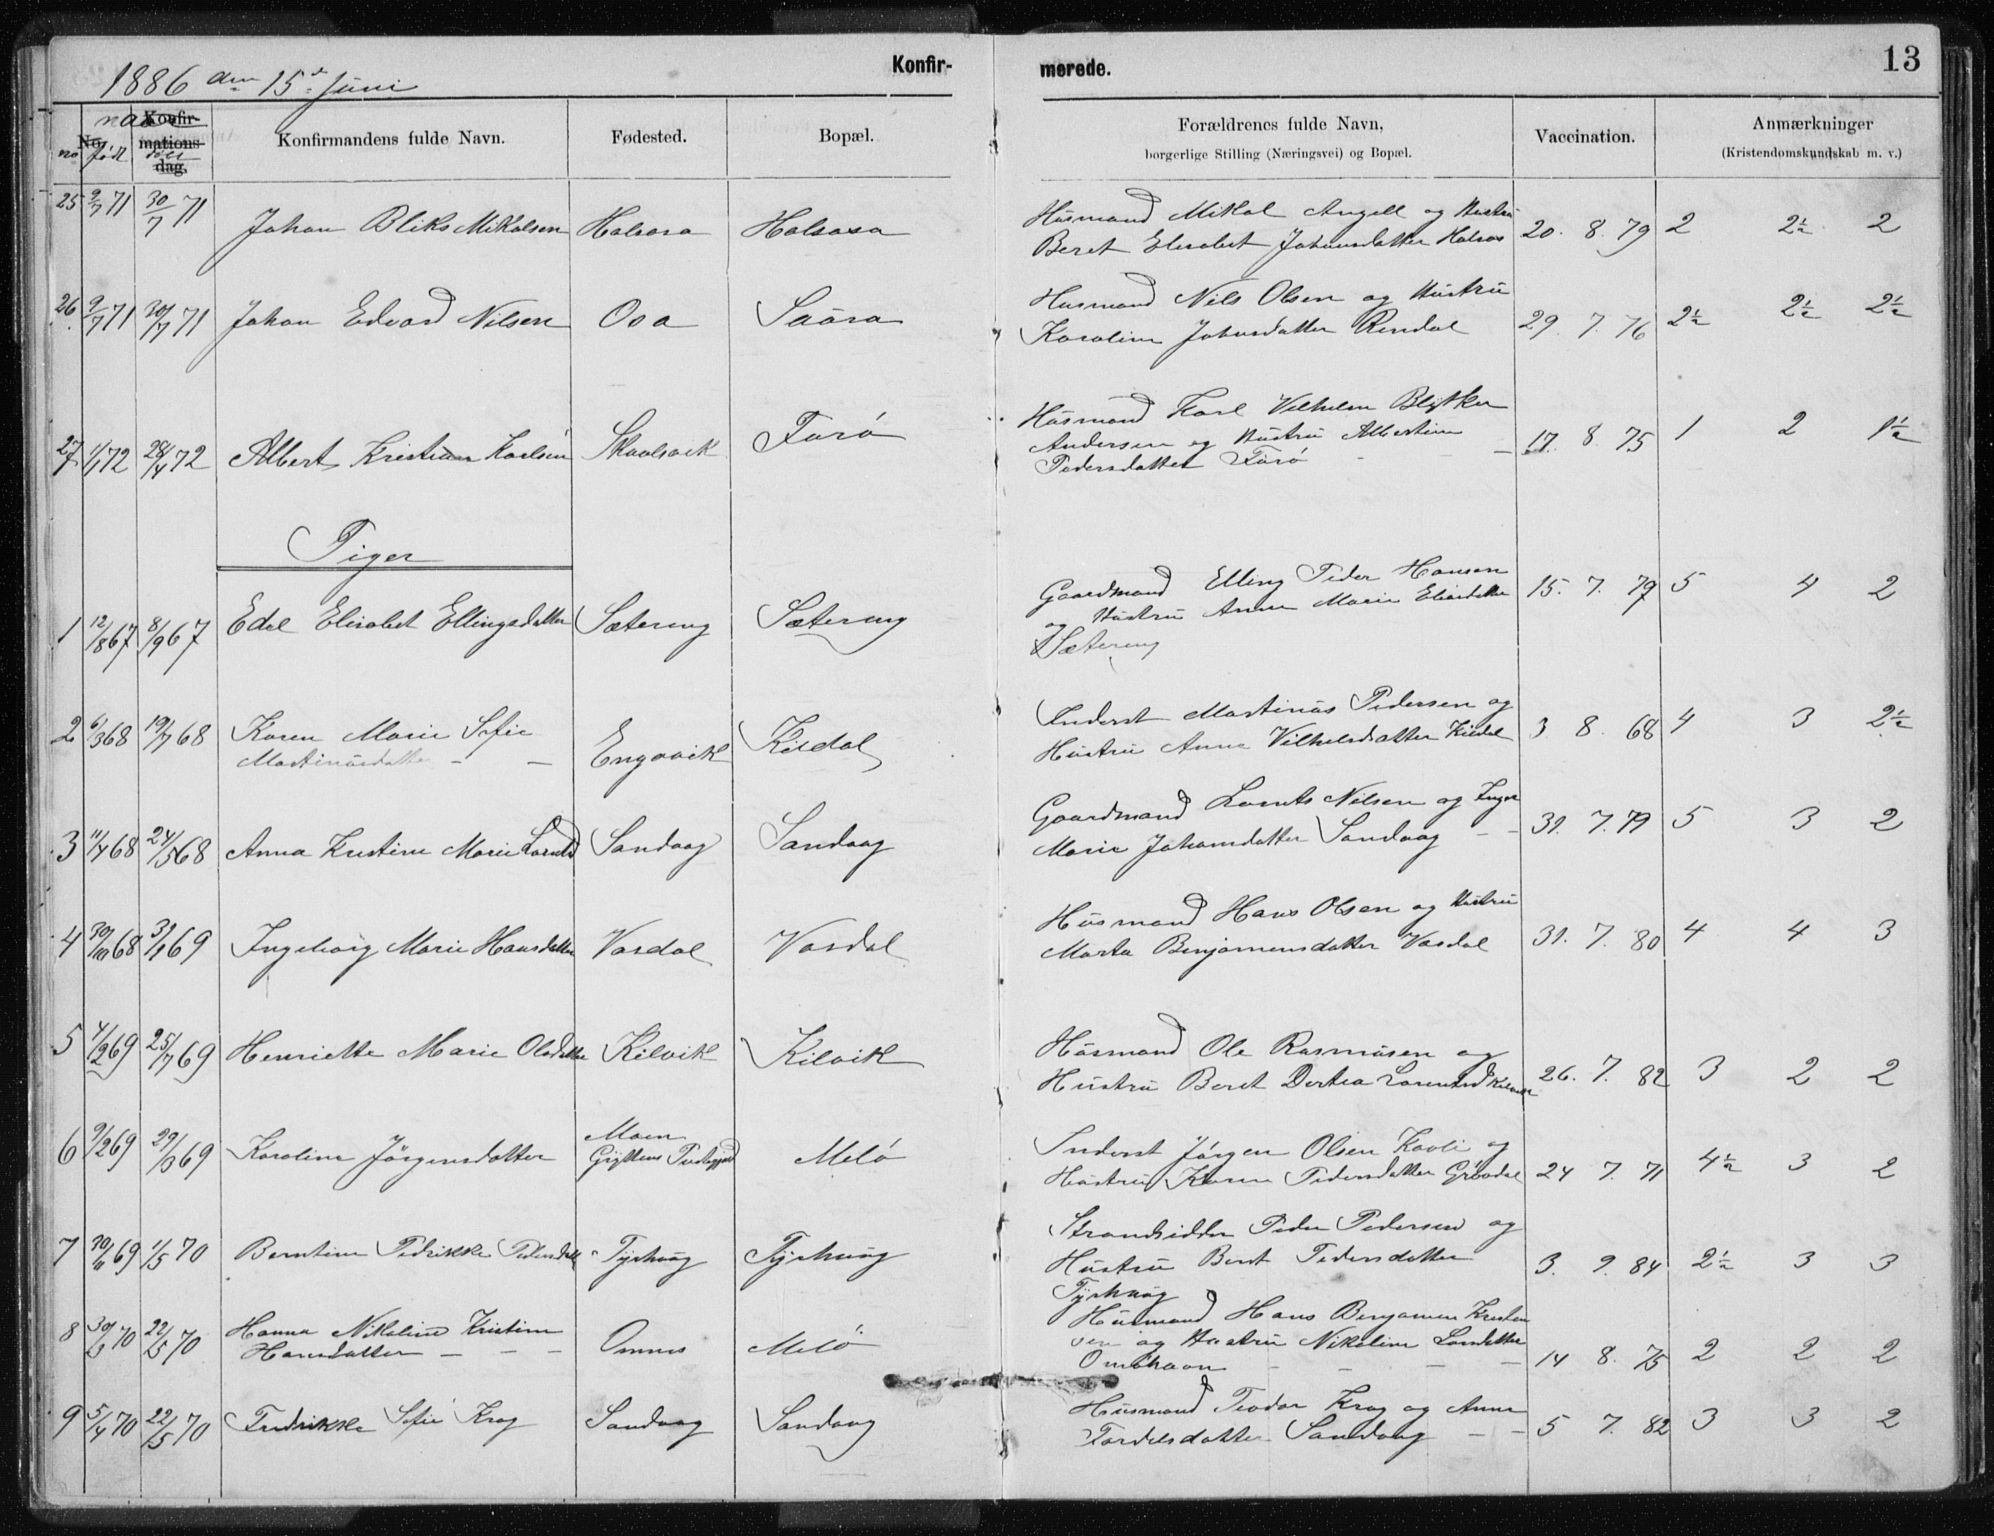 1886 den 15de Juni
Konfir-
merede.
13
naar
No. Konfir-mations-dag.
no født døbt
Konfirmandens fulde Navn.
Fødested.
Bopæl.
Forældrenes fulde Navn,
borgerlige Stilling (Næringsvei) og Bopæl.
Vaccination.
Anmærkninger
(Kristendomskundskab m. v.)
25 9/7 71 30/7 71 Johan Bliks Mikalsen Halsosa Halsosa
Husmand Mikal Angell og Hustru
Beret Elisabet Johansdatter Halsos 20. 8. 79 2 2½ 2
26 9/7 71 30/7 71 Johan Edvard Nilsen Osa
Husmand Nils Olsen og Hustru
Karoline Johnsdatter Rendal 29. 7. 76 2½ 2½ 2½
27 1/1 72 28/4 72 Albert Kristian Karlsen Skaalsvik Forö
Husmand Karl Vilhelm
Andersen og Hustru Albertine
Pedersdatter Forö - - 17. 8. 75 1 2 1½
Piger
1 12/8 67 8/9 67 Edel Elisabet Ellingsdatter Sætereng Sætereng
Gaardmand Elling Peder Hansen
og Hustru Anne Marie
Sætereng 15. 7. 79 5 4 2
2 6/3 68 19/7 68 Karen Marie Sofie
Martinusdatter - - Engavik Kildal
Inderst Martinus Pedersen og
Hustru Anne Vilhelsdatter Kildal 3 8. 68 4 3 2½
3 11/4 68 24/5 68 Anna Kristine Marie Lorntsd Sandvaag Sandvaag
Gaardmand Lornts Nilsen og Inger
Marie Johansdatter Sandvaag - - 31. 7. 79 5 3 2
4 30/10 68 31/1 69 Ingeborg Marie Hansdatter Vasdal Vasdal
Husmand Hans Olsen og Hustru
Marta Benjamensdatter Vasdal 31. 7. 80 4 4 3
5 4/2 69 25/7 69 Henriette Marie Olsdatter Kilvik Kilvik
Husmand Ole Rasmusen og
Hustru Beret Dortea Lorentsd Kilvik 26. 7. 82 3 2 2
6 9/2 69 29/3 69 Karoline Jörgensdatter Moen
Gryttens Præstegjeld Melö
Inderst Jörgen Olsen Kavli og
Hustru Karen Pedersdatter Grövdal 24 7. 71 4½ 3 2
7 30/11 69 1/5 70 Berntine Fredrikke Pedersdatter Tyshaug Tyshaug
Strandsidder Peder Pedersen og
Hustru Beret Pedersdatter
Tyshaug 3. 9. 84 2½ 3 3
8 22/5 70 Hanna Nikoline Kristine
Hansdatter - - - Omnes Melö
Husmand Hans Benjamen Kristen
sen og Hustru Nikoline
- - - - 14 8. 75 2 2 2
9 5/4 70 22/5 70 Fredrikke Sofie Krog Sandvaag Sandvaag
Husmand Teodor Krog og Anne
Tordelsdatter Sandvaag - - 5 7. 82 3 3 2